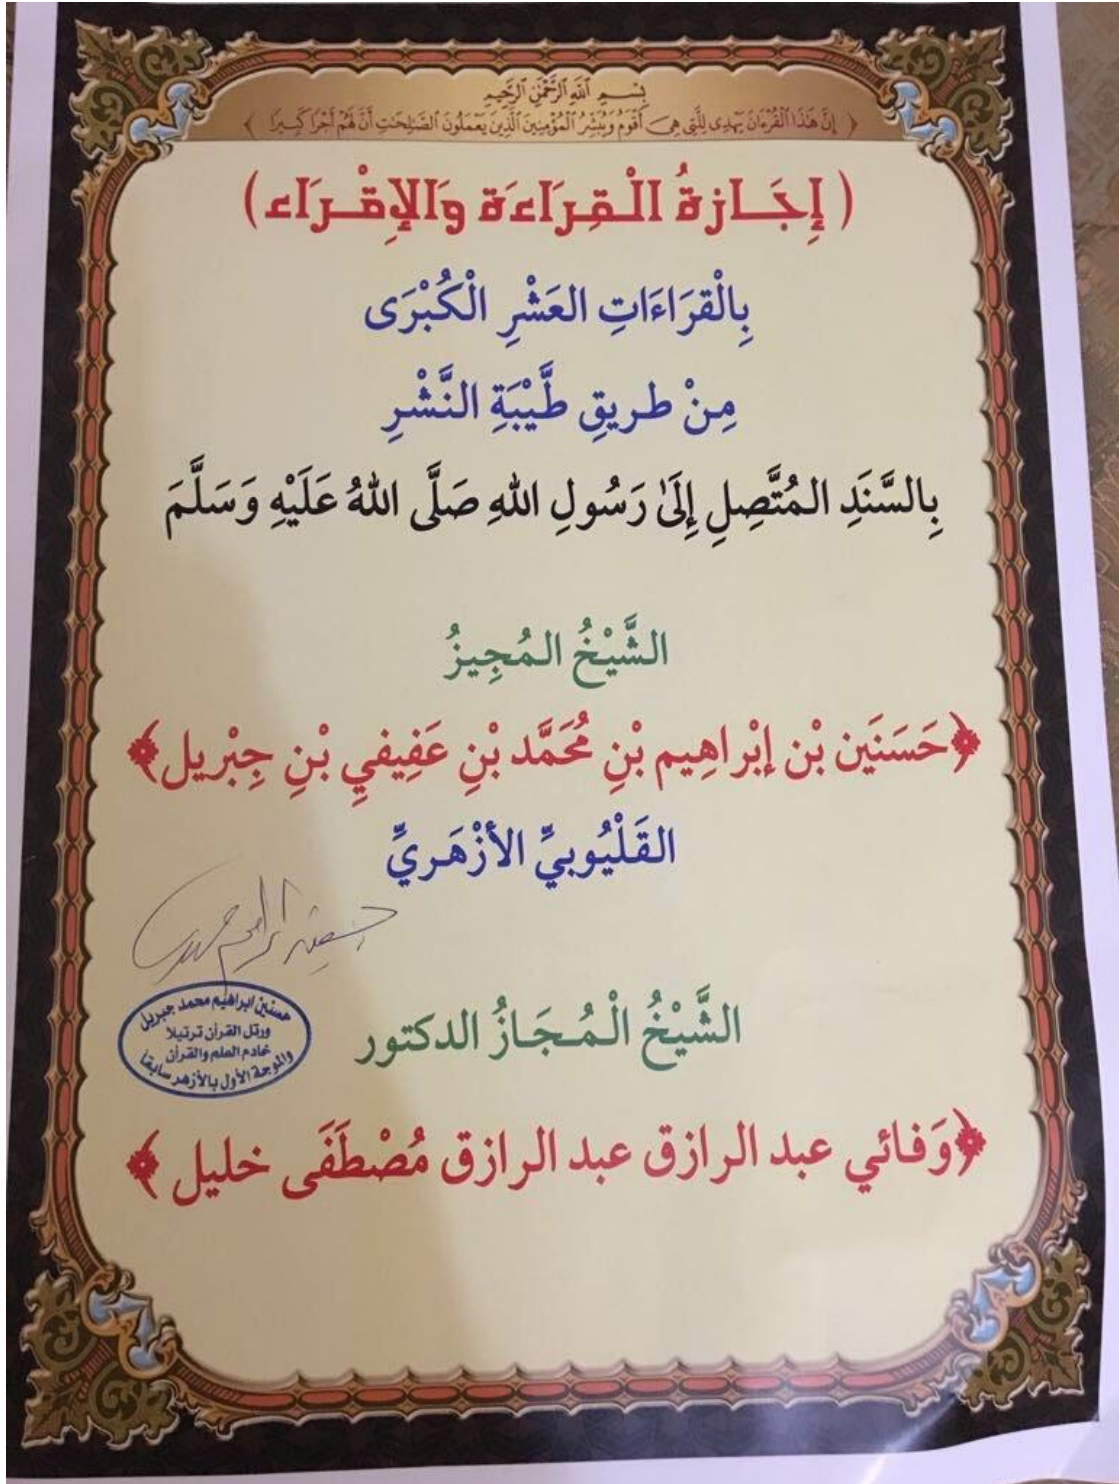 بِسْمِ ٱللَّهِ ٱلرَّحْمَٰنِ ٱلرَّحِيمِ
﴿ إِنَّ هَٰذَا ٱلْقُرْءَانَ يَهْدِى لِلَّتِى هِىَ أَقْوَمُ وَيُبَشِّرُ ٱلْمُؤْمِنِينَ ٱلَّذِينَ يَعْمَلُونَ ٱلصَّٰلِحَٰتِ أَنَّ لَهُمْ أَجْرًا كَبِيرًا ﴾
( إِجَازةُ الْقِرَاءَة وَالإِقْرَاء )
بِالْقرَاءَاتِ العَشْرِ الْكُبْرَى
مِنْ طريقِ طَّيْبَةِ النَّشْرِ
بِالسَّنَدِ المُتَّصِلِ إِلَىٰ رَسُولِ اللهِ صَلَّى اللهُ عَلَيْهِ وَسَلَّمَ
الشَّيْخُ المُجِيزُ
﴿حَسَنَين بْن إبْراهِيم بْنِ مُحَمَّد بْنِ عَفِيفيِ بْنِ جِبْريل﴾
القَلْيُوبيِّ الأزْهَريِّ
حسنين ابراهيم محمد جبريل
ورتل القرآن ترتيلا
خادم العلم والقرآن
والموجة الأول بالأزهر سابقا
الشَّيْخُ الْمُجَازُ الدكتور
﴿وَفائي عبد الرازق عبد الرازق مُصْطَفَى خليل﴾